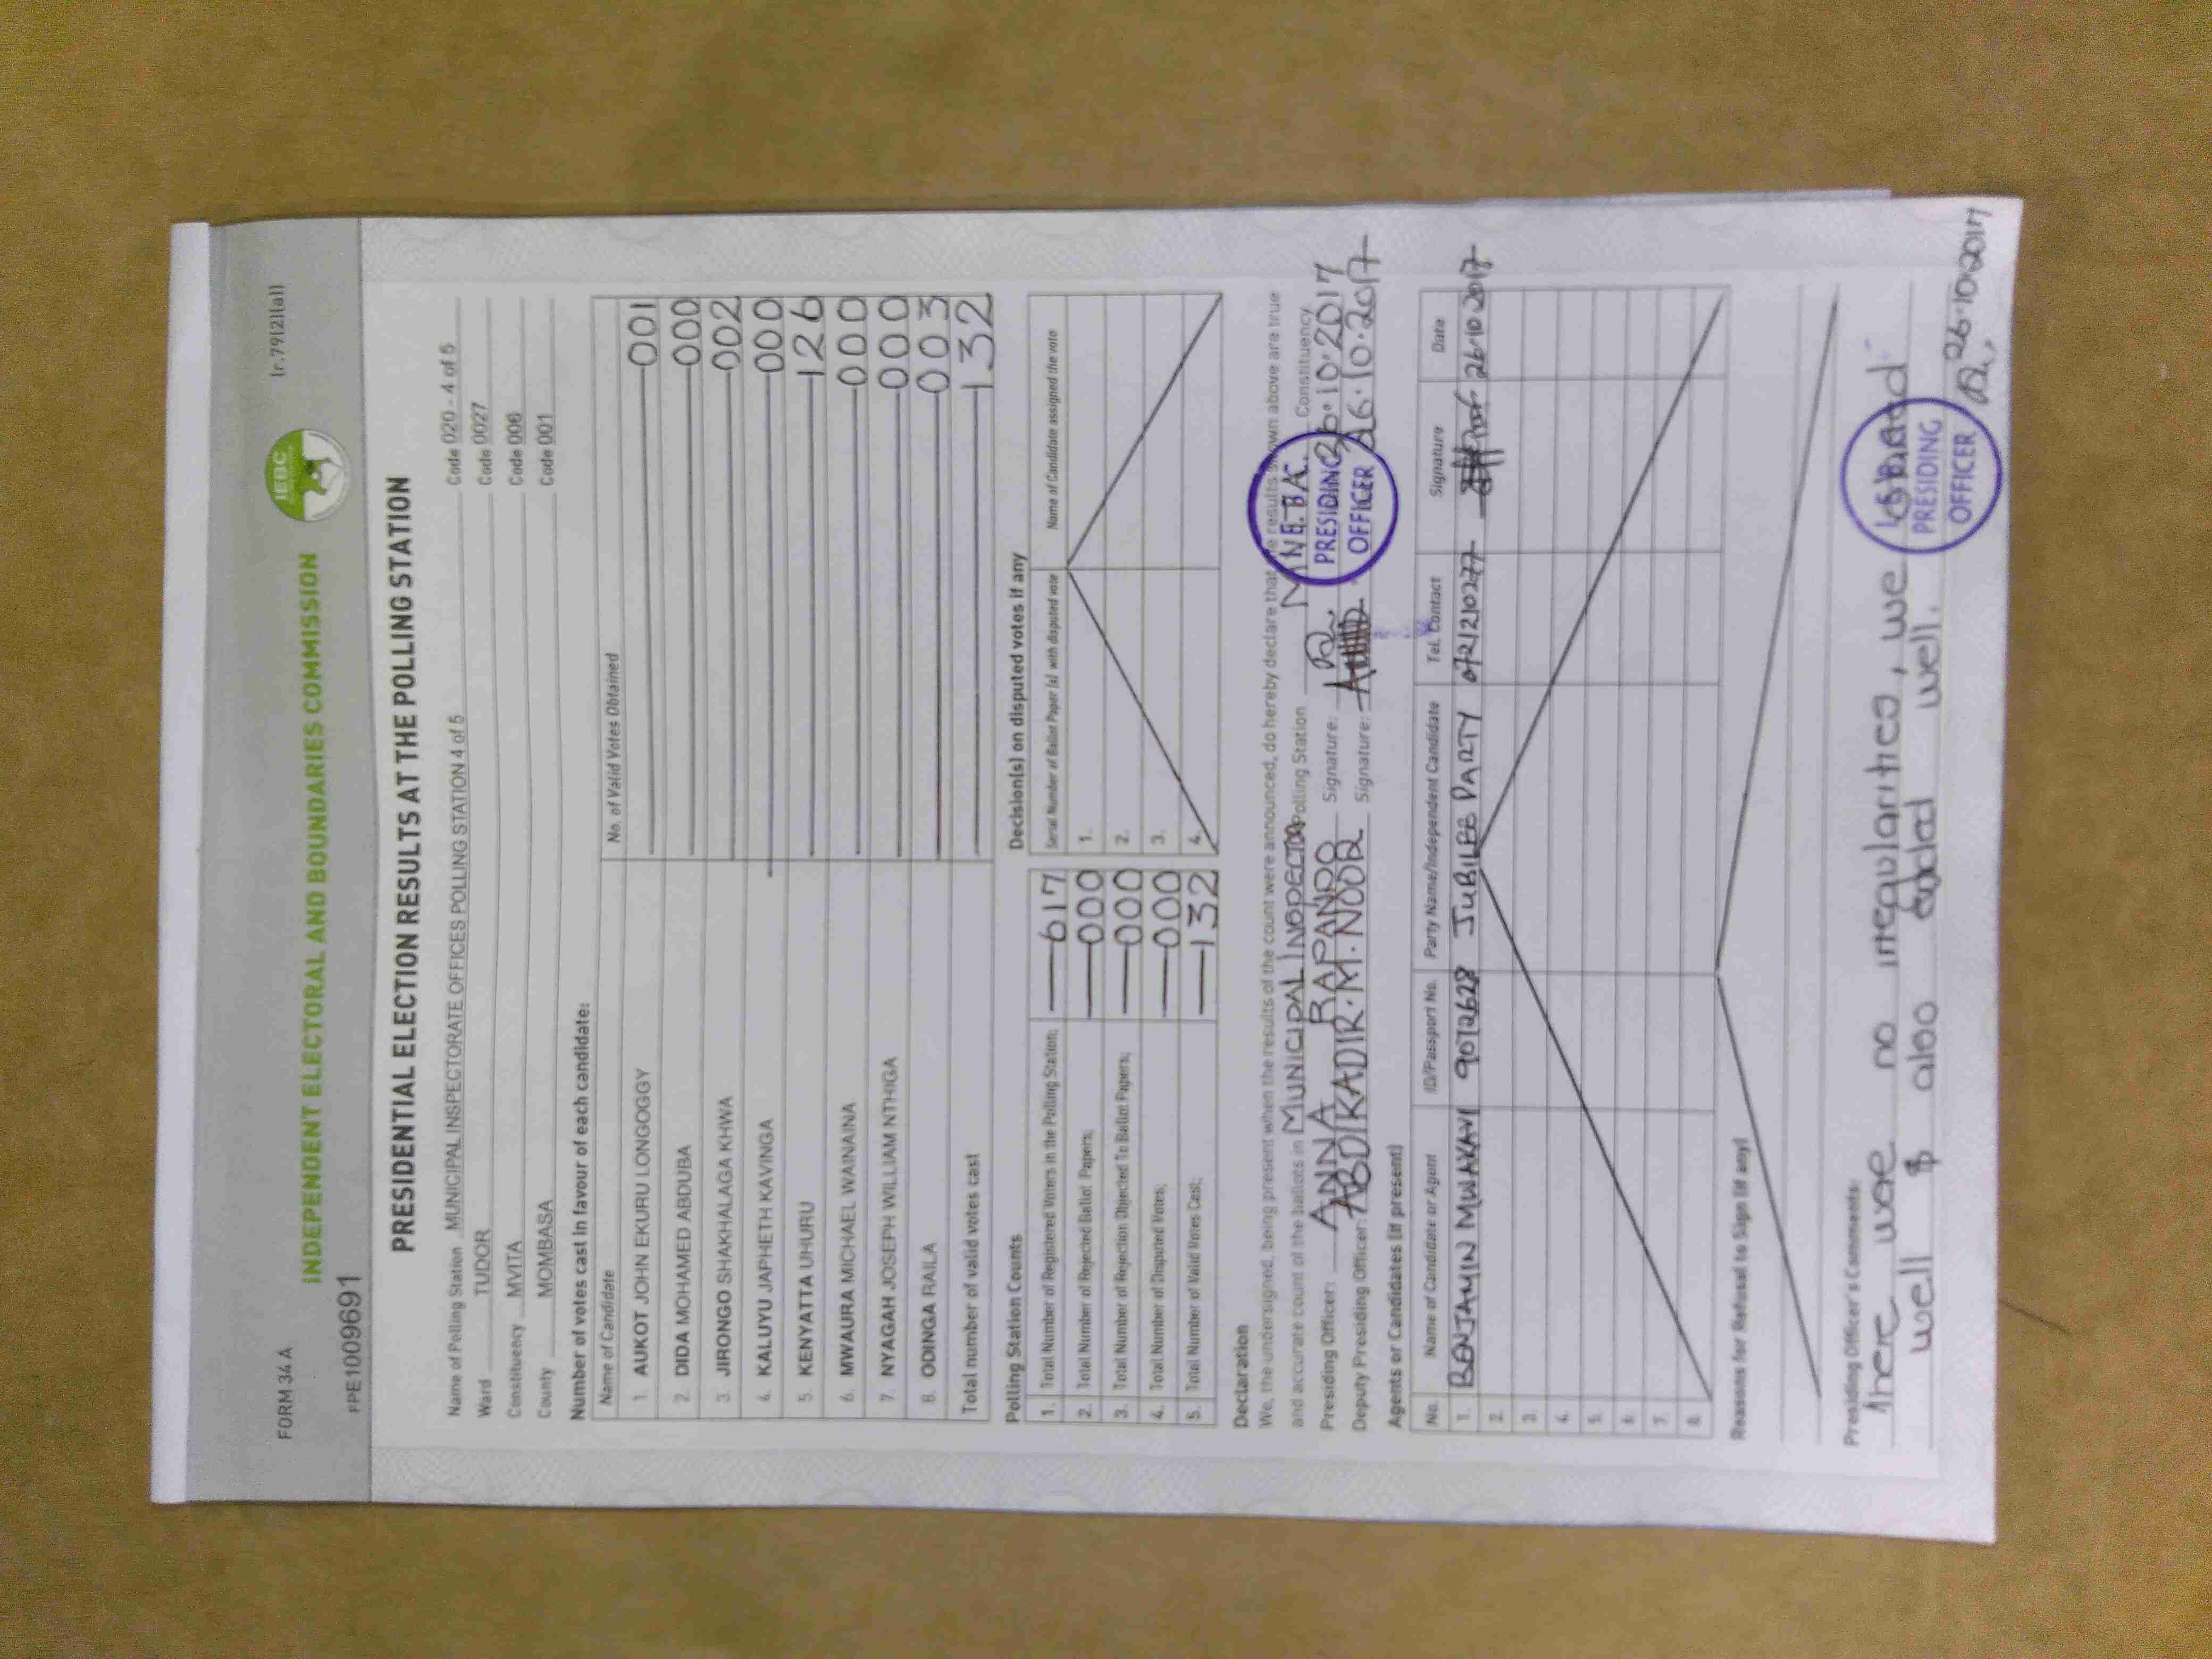 FORM 34 A
(r.79(2)(a))
IEBC
INDEPENDENT ELECTORAL AND BOUNDARIES COMMISSION
PPE1009691
PRESIDENTIAL ELECTION RESULTS AT THE POLLING STATION
Name of Polling Station MUNICIPAL INSPECTORATE OFFICES POLLING STATION 4 of 5 Code 020 - 4 of 5
Ward TUDOR Code 0027
Constituency MVITA Code 006
County MOMBASA Code 001
Number of votes cast in favour of each candidate:
Name of Candidate No. of Valid Votes Obtained
1. AUKOT JOHN EKURU LONGOGGY 001
2. DIDA MOHAMED ABDUBA 000
3. JIRONGO SHAKHALAGA KHWA 002
4. KALUYU JAPHETH KAVINGA 000
5. KENYATTA UHURU 126
6. MWAURA MICHAEL WAINAINA 000
7. NYAGAH JOSEPH WILLIAM NTHIGA 000
8. ODINGA RAILA 003
Total number of valid votes cast 132
Polling Station Counts
1. Total Number of Registered Voters in the Polling Station; 617
2. Total Number of Rejected Ballot Papers; 000
3. Total Number of Rejection Objected To Ballot Papers; 000
4. Total Number of Disputed Votes; 000
5. Total Number of Valid Votes Cast; 132
Decision(s) on disputed votes if any
Serial Number of Ballot Paper (s) with disputed vote Name of Candidate assigned the vote
1.
2.
3.
4.
Declaration
We, the undersigned, being present when the results of the count were announced, do hereby declare that the results shown above are true
and accurate count of the ballots in MUNICIPAL INSPECTOR Polling Station Constituency
Presiding Officer: ANNA RAPANDO Signature: 26.10.2017
Deputy Presiding Officer: ABDIKADIR.M.NOOR Signature: 26.10.2017
PRESIDING
OFFICER
Agents or Candidates (if present)
No. Name of Candidate or Agent ID/Passport No. Party Name/Independent Candidate Tel. Contact Signature Date
1. BENJAMIN MWAKAVI 9072628 JUBILEE PARTY 0721210277 26.10.2017
2.
3.
4.
5.
6.
7.
8.
Reasons for Refusal to Sign (if any)
Presiding Officer's Comments:
There was no irregularities, we
well $ also ended well.
PRESIDING
OFFICER
26.10.2017